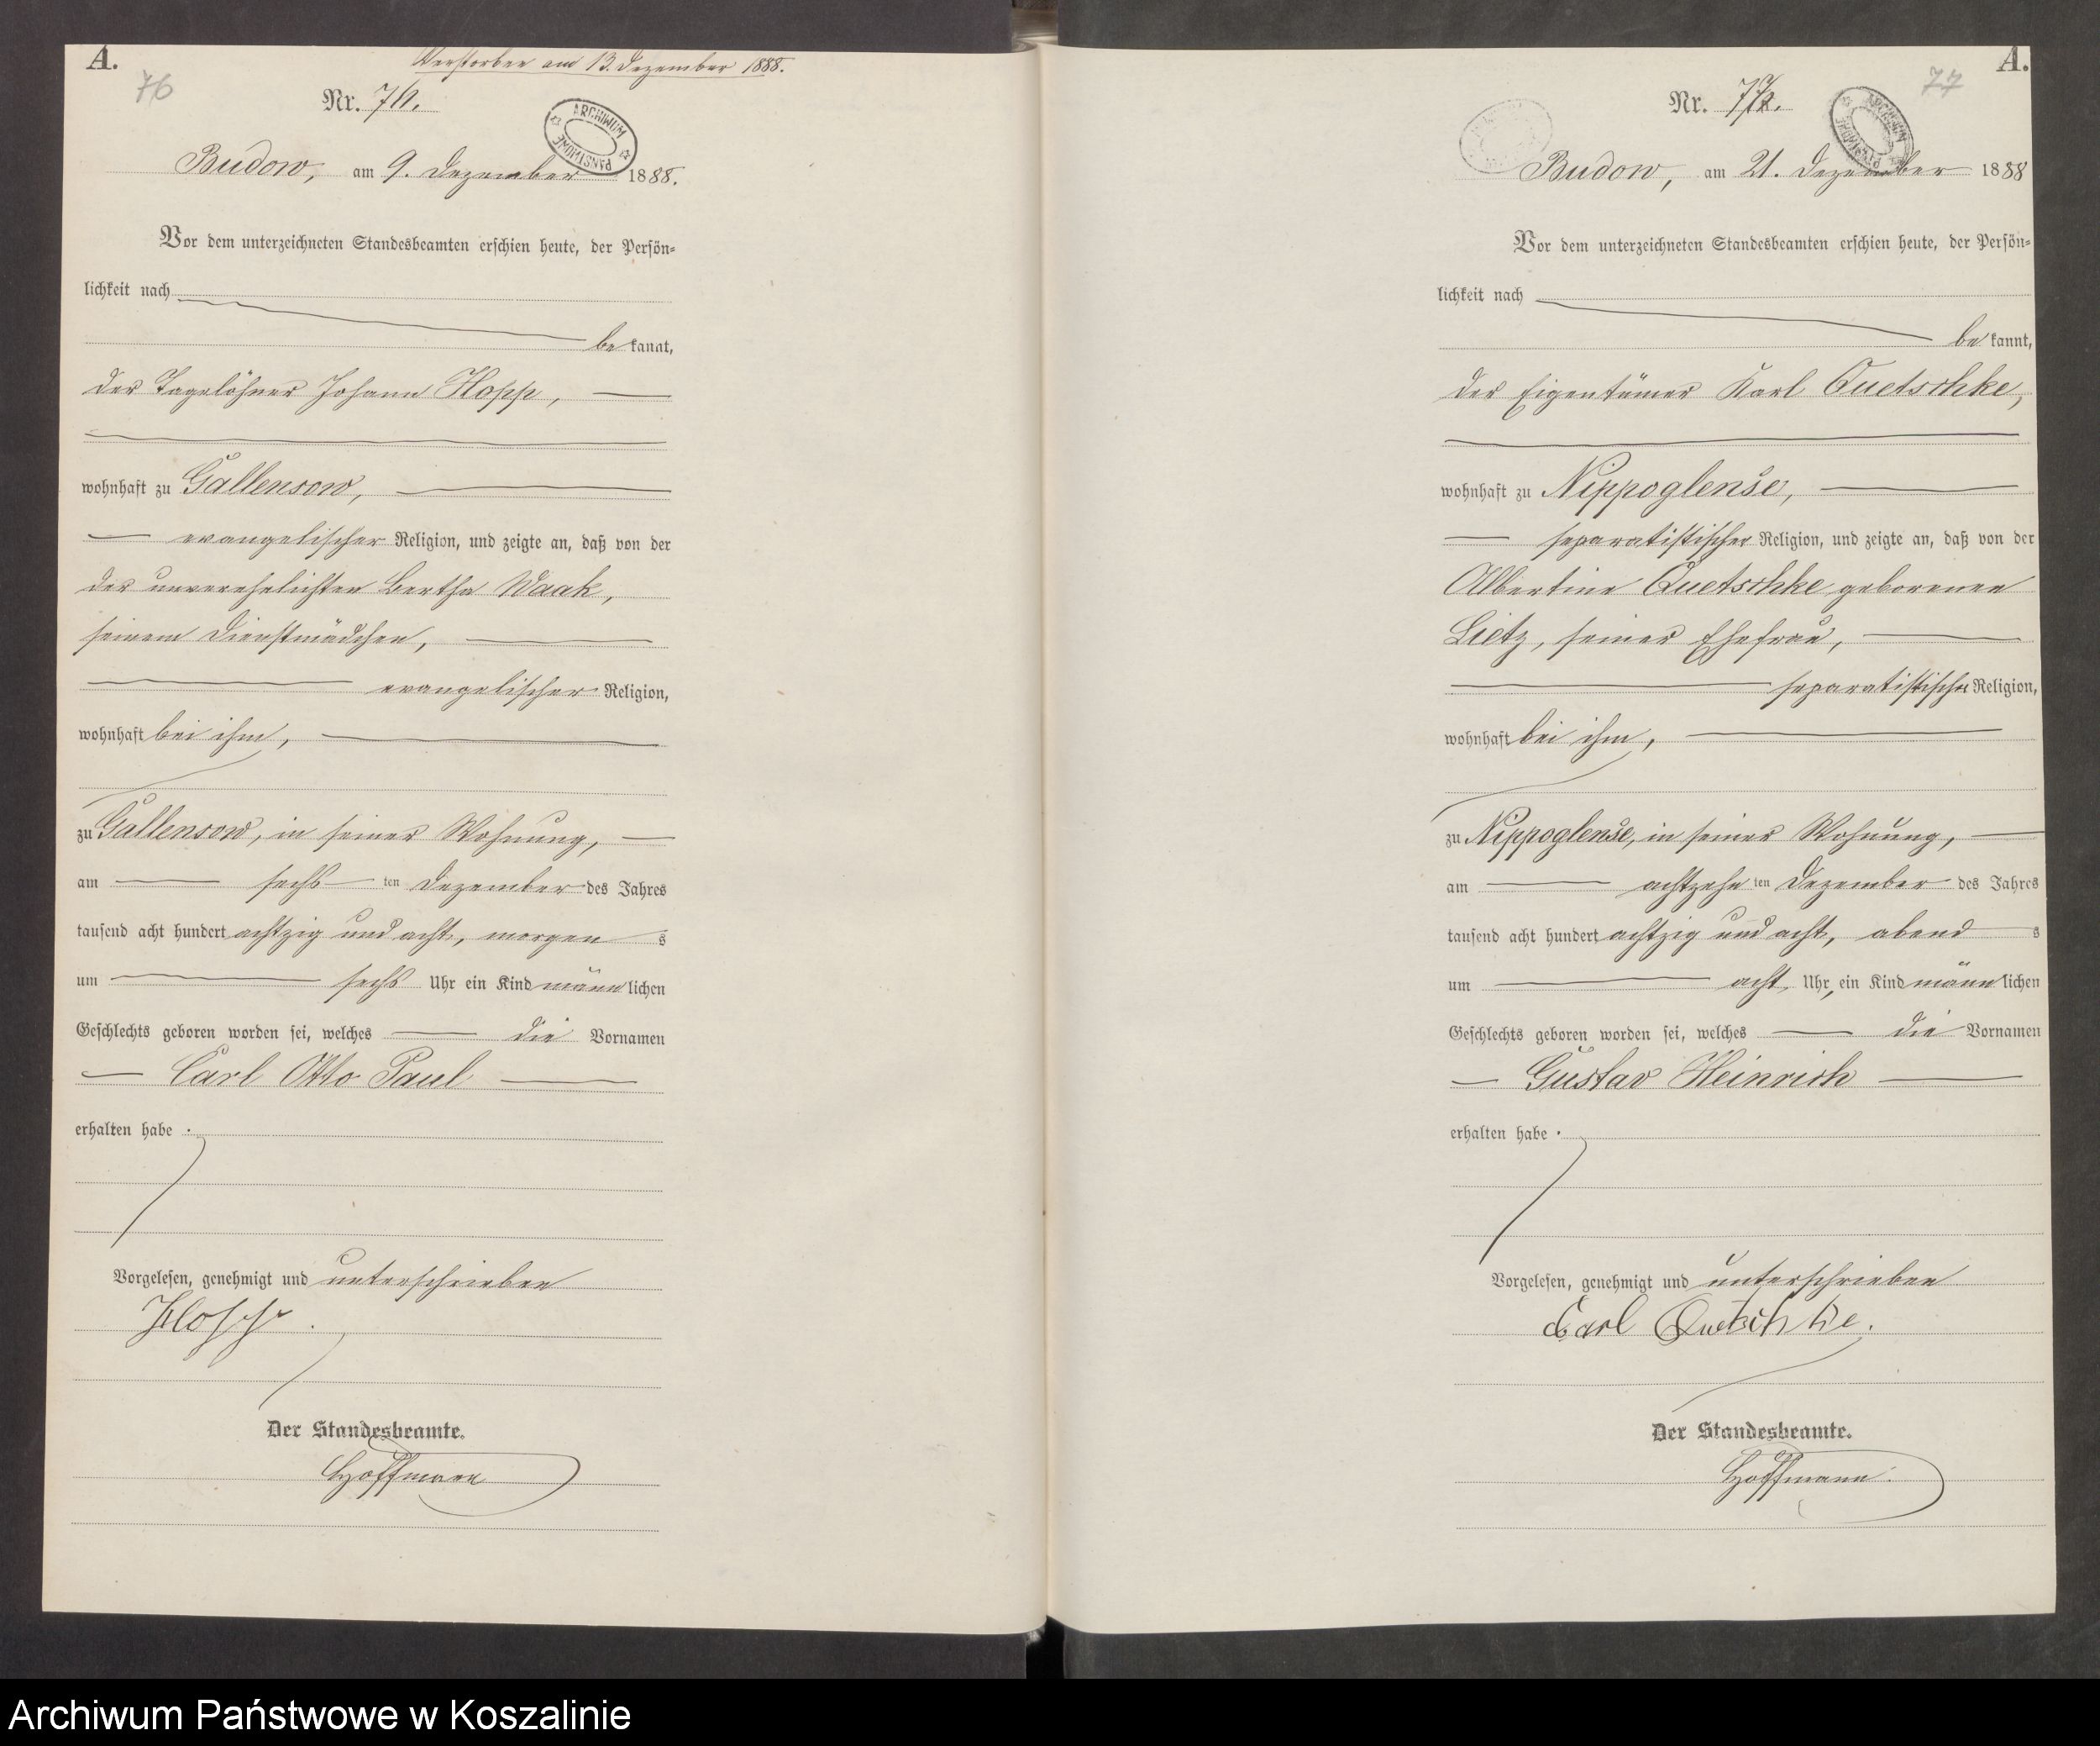 A.
Verstorben am 13. Dezember 1888.
76
Nr. 76.
ARCHIWUM PAŃSTWOWE
Budow, am 9. Dezember 1888.
Vor dem unterzeichneten Standesbeamten erschien heute, der Persön=
lichkeit nach
be kannt,
der Tagelöhner Johann Klopp,
wohnhaft zu Gallensow,
evangelischer Religion, und zeigte an, daß von der
der unverehelichten Bertha Waak,
seinem Dienstmädchen,
evangelischer Religion,
wohnhaft bei ihm,
zu Gallensow, in seiner Wohnung,
am sechs ten Dezember des Jahres
tausend acht hundert achtzig und acht, morgen s
um sechs Uhr ein Kind männ lichen
Geschlechts geboren worden sei, welches die Vornamen
Carl Otto Paul
erhalten habe .
Vorgelesen, genehmigt und unterschrieben
Der Standesbeamte.
Hoffmann
A.
77
Nr. 77.
ARCHIWUM PAŃSTWOWE
Budow, am 21. Dezember 1888
Vor dem unterzeichneten Standesbeamten erschien heute, der Persön=
lichkeit nach
be kannt,
der Eigentümer Karl Quetschke,
wohnhaft zu Nippoglense,
separatistischer Religion, und zeigte an, daß von der
Albertine Quetschke geborenen
Lietz, seiner Ehefrau,
separatistischer Religion,
wohnhaft bei ihm,
zu Nippoglense, in seiner Wohnung,
am achtzehn ten Dezember des Jahres
tausend acht hundert achtzig und acht, abend s
um acht Uhr, ein Kind männ lichen
Geschlechts geboren worden sei, welches die Vornamen
Gustav Heinrich
erhalten habe .
Vorgelesen, genehmigt und unterschrieben
Carl Quetschke.
Der Standesbeamte.
Hoffmann.
Archiwum Państwowe w Koszalinie